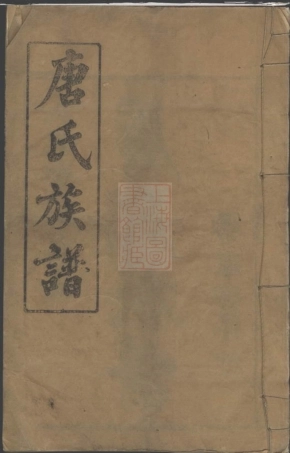 唐氏族譜
上海圖
書館藏